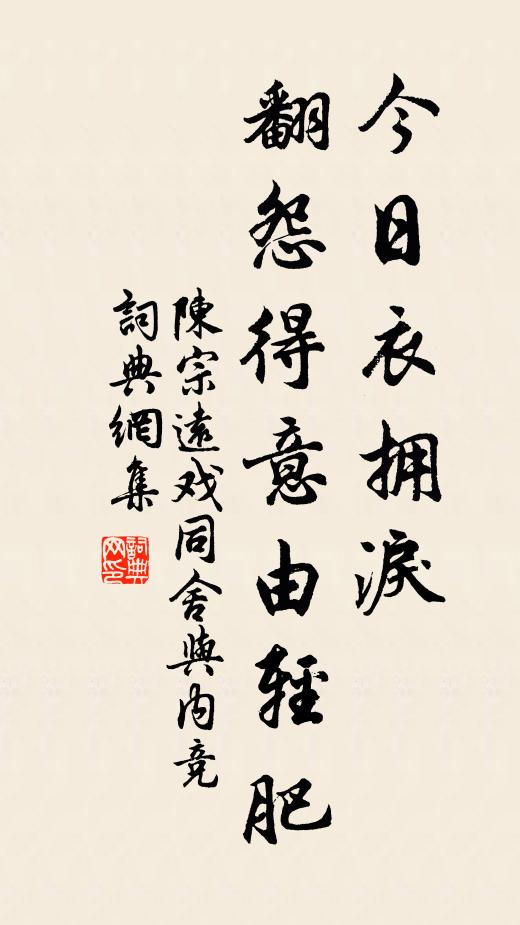 今日衣拥淚
翻怨得意由輕肥
陳宗遠戏同舍與内竞
詞典網集
詞典网印